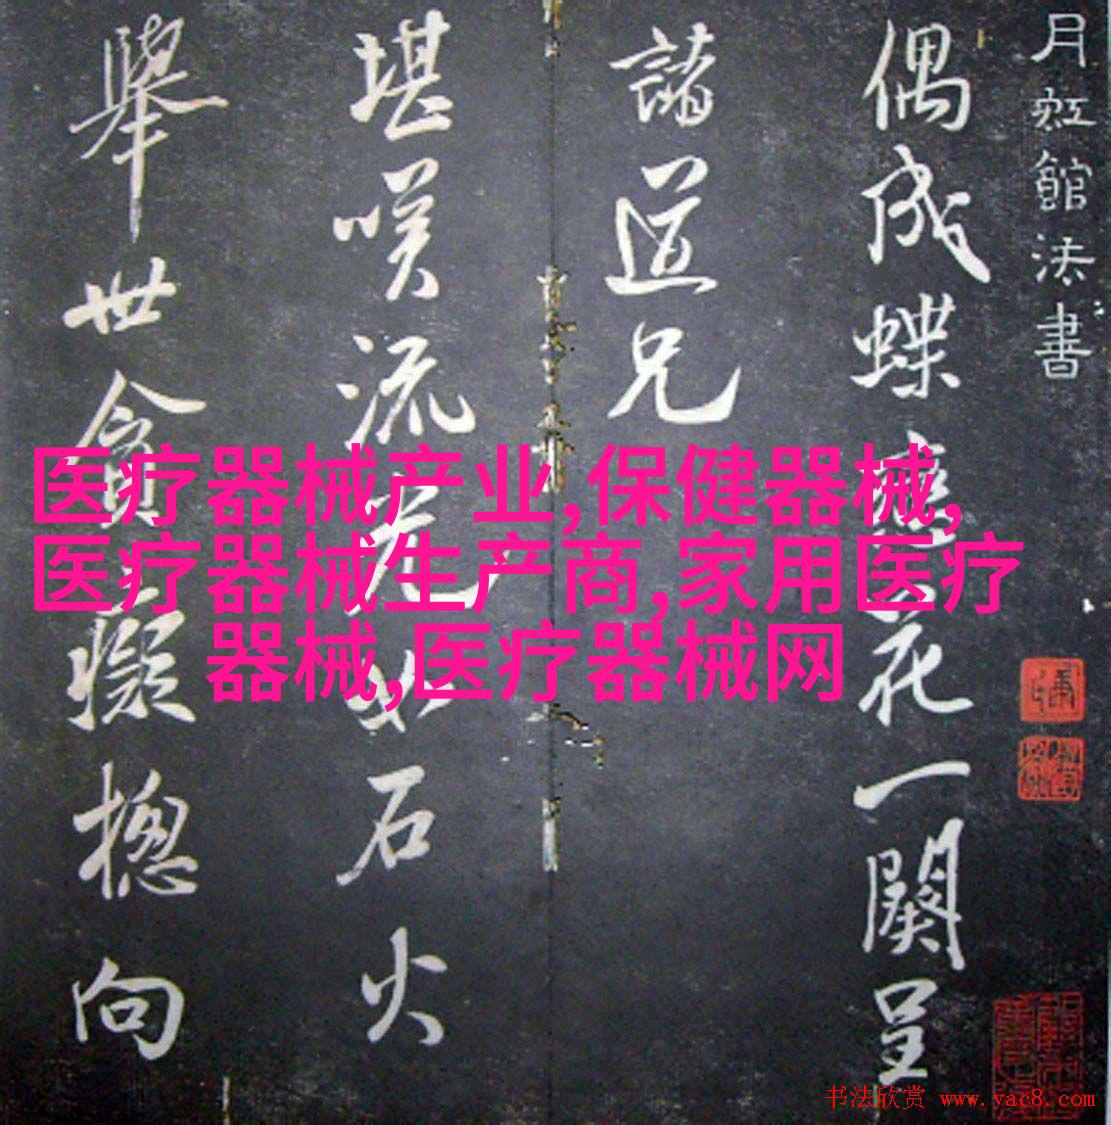 月虹館法書
偶成蝶戀花一闋呈
諸道兄
堪咲流光如石火
舉世貪癡揔向
医疗器械产业,保健器械,
医疗器械生产商,家用医疗
器械,医疗器械网
书法欣赏 www.yac8.com